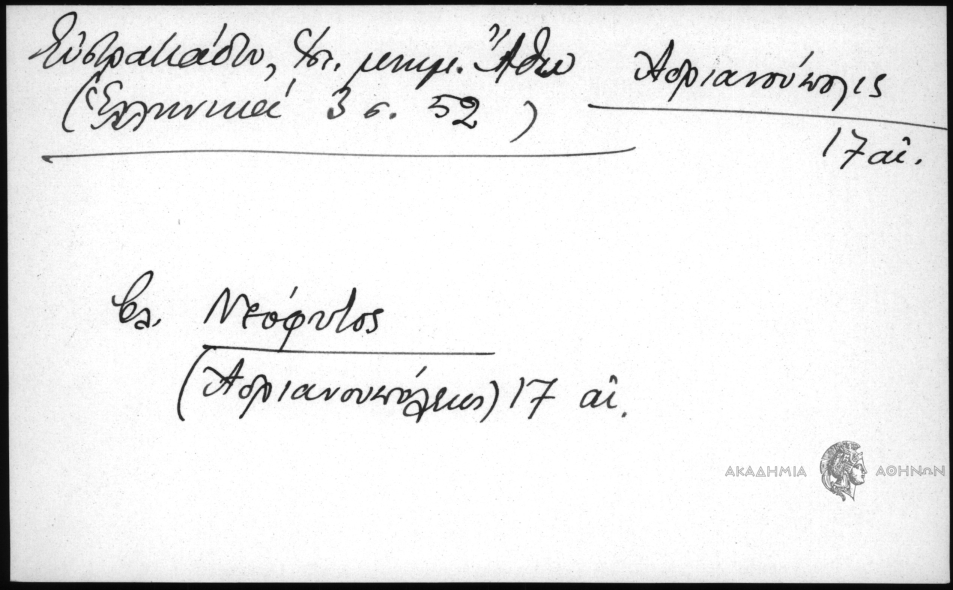 Εὐστρατιάδου, Ἱστ. μνημ. Ἄθω
(Ἑλληνικά 3 σ. 52)
Ἀδριανούπολις
17 αἰ.
βλ. Νεόφυτος
(Ἀδριανουπόλεως) 17 αἰ.
ΑΚΑΔΗΜΙΑ ΑΘΗΝΩΝ